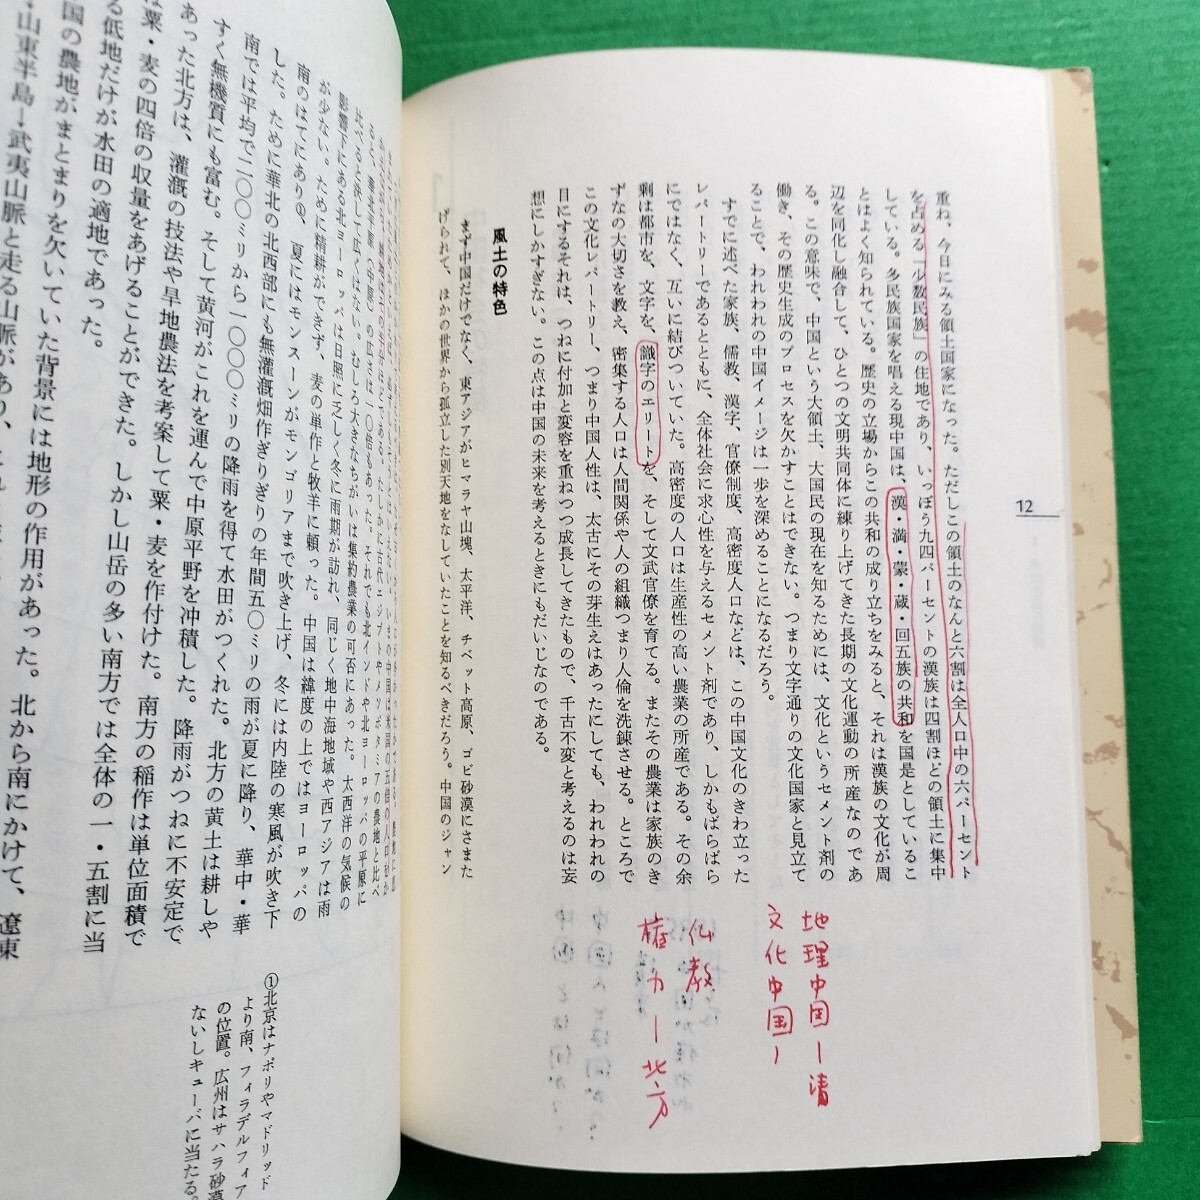 12
重ね、今日にみる領土国家になった。ただしこの領土のなんと六割は全人口中の六パーセント
を占める「少数民族」の住地であり、いっぽう九四パーセントの漢族は四割ほどの領土に集中
している。多民族国家を唱える現中国は、漢・満・蒙・蔵・回五族の共和を国是としているこ
とはよく知られている。歴史の立場からこの共和の成り立ちをみると、それは漢族の文化が周
辺を同化し融合して、ひとつの文明共同体に練り上げてきた長期の文化運動の所産なのであ
る。この意味で、中国という大領土、大国民の現在を知るためには、文化というセメント剤の
働き、その歴史生成のプロセスを欠かすことはできない。つまり文字通りの文化国家と見立て
ることで、われわれの中国イメージは一歩を深めることになるだろう。
すでに述べた家族、儒教、漢字、官僚制度、高密度人口などは、この中国文化のきわ立った
レパートリーであるとともに、全体社会に求心性を与えるセメント剤であり、しかもばらばら
にではなく、互いに結びついていた。高密度の人口は生産性の高い農業の所産である。その余
剰は都市を、文字を、識字のエリートを、そして文武官僚を育てる。またその農業は家族のき
ずなの大切さを教え、密集する人口は人間関係や人の組織つまり人倫を洗錬させる。ところで
この文化レパートリー、つまり中国人性は、太古にその芽生えはあったにしても、われわれの
目にするそれは、つねに付加と変容を重ねつつ成長してきたもので、千古不変と考えるのは妄
想にしかすぎない。この点は中国の未来を考えるときにもだいじなのである。
風土の特色
まず中国だけでなく、東アジアがヒマラヤ山塊、太平洋、チベット高原、ゴビ砂漠にさまた
げられて、ほかの世界から孤立した別天地をなしていたことを知るべきだろう。中国のジャン
地理中国ー清
文化中国ー
仏教
権力ー北方
ると、華北平原（中原）の広さは一〇倍もあった。それでも北インドや北ヨーロッパの平原に
比べると決して広くはない。むしろ大きなちがいは集約農業の可否にあった。太西洋の気候の
影響下にある北ヨーロッパは日照に乏しく冬に雨期が訪れ、同じく地中海地域や西アジアは雨
が少ない。ために精耕ができず、麦の単作と牧羊に頼った。中国は緯度の上ではヨーロッパの
南のはてにあり①、夏にはモンスーンがモンゴリアまで吹き上げ、冬には内陸の寒風が吹き下
した。ために華北の北西部にも無灌漑畑作ぎりぎりの年間五〇ミリの雨が夏に降り、華中・華
南では平均で二〇〇ミリから一〇〇〇ミリの降雨を得て水田がつくれた。北方の黄土は耕しや
すく無機質にも富む。そして黄河がこれを運んで中原平野を冲積した。降雨がつねに不安定で
あった北方は、灌漑の技法や旱地農法を考案して粟・麦を作付けた。南方の稲作は単位面積で
は粟・麦の四倍の収量をあげることができた。しかし山岳の多い南方では全体の一・五割に当
る低地だけが水田の適地であった。
国の農地がまとまりを欠いていた背景には地形の作用があった。北から南にかけて、遼東
・山東半島→武夷山脈と走る山脈があり、
①北京はナポリやマドリッド
より南、フィラデルフィア
の位置。広州はサハラ砂漠
ないしキューバに当たる。